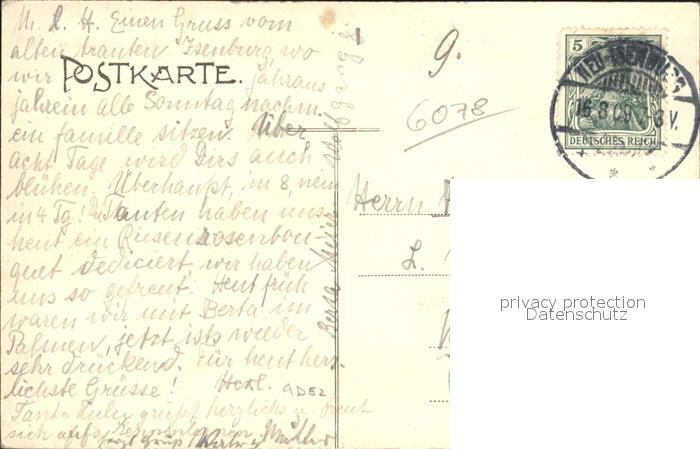 M. L. H. Einen Gruss vom
alten trauten Isenburg, wo
wir jahraus
POSTKARTE.
jahrein alle Sonntag nachm.
ein famille sitzen. Über
acht Tage wird Dirs auch
blühen. Überhaupt, in 8, nein
in 4 Tg! Tanten haben uns
heut ein Riesenrosenbou-
quet dediciert, wir haben
uns so gefreut. Heut früh
waren wir mit Berta im
Palmen, jetzt ists wieder
sehr drückend. Für heut herz-
lichste Grüsse!
9DE2
Tante grüßt herzlichs u. freut
sich aufs
Gruß
9.
6078
5
DEUTSCHES REICH
NEU-ISENBURG
16.8.09
V.
Herrn
L.
privacy protection
Datenschutz